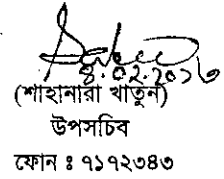 ৪.০২.২০১৬
(শাহানারা খাতুন)
উপসচিব
ফোন ঃ ৭১৭২৩৪৩